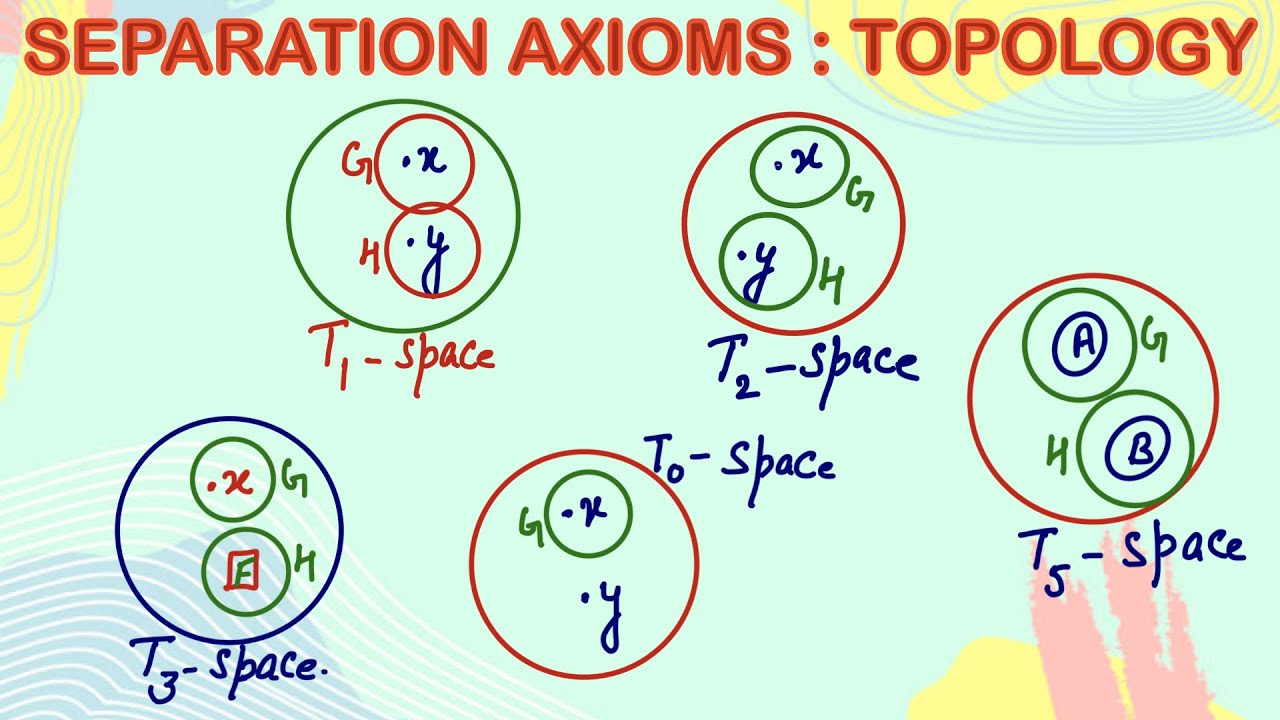 SEPARATION AXIOMS : TOPOLOGY
G .x
H .y
T1 - space
.x G
.y H
T2 - space
A G
H B
T5 - space
.x G
F H
T3 - space.
T0 - space
G .x
.y